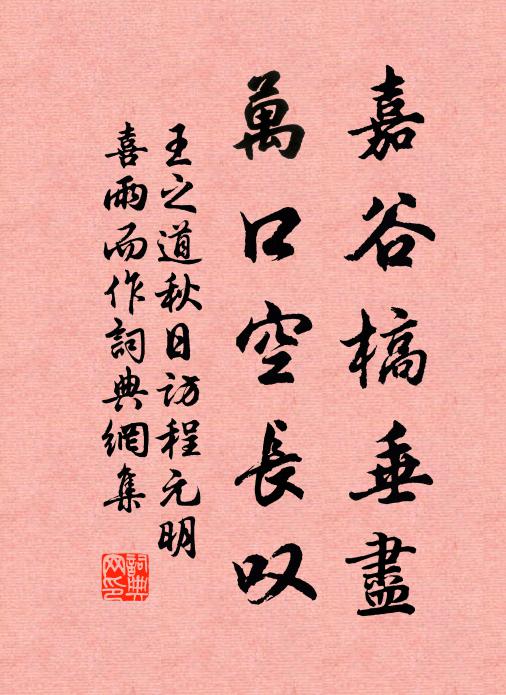 嘉谷槁垂盡
萬口空長叹
王之道秋日訪程元明
喜雨而作詞典網集
詞典
网印